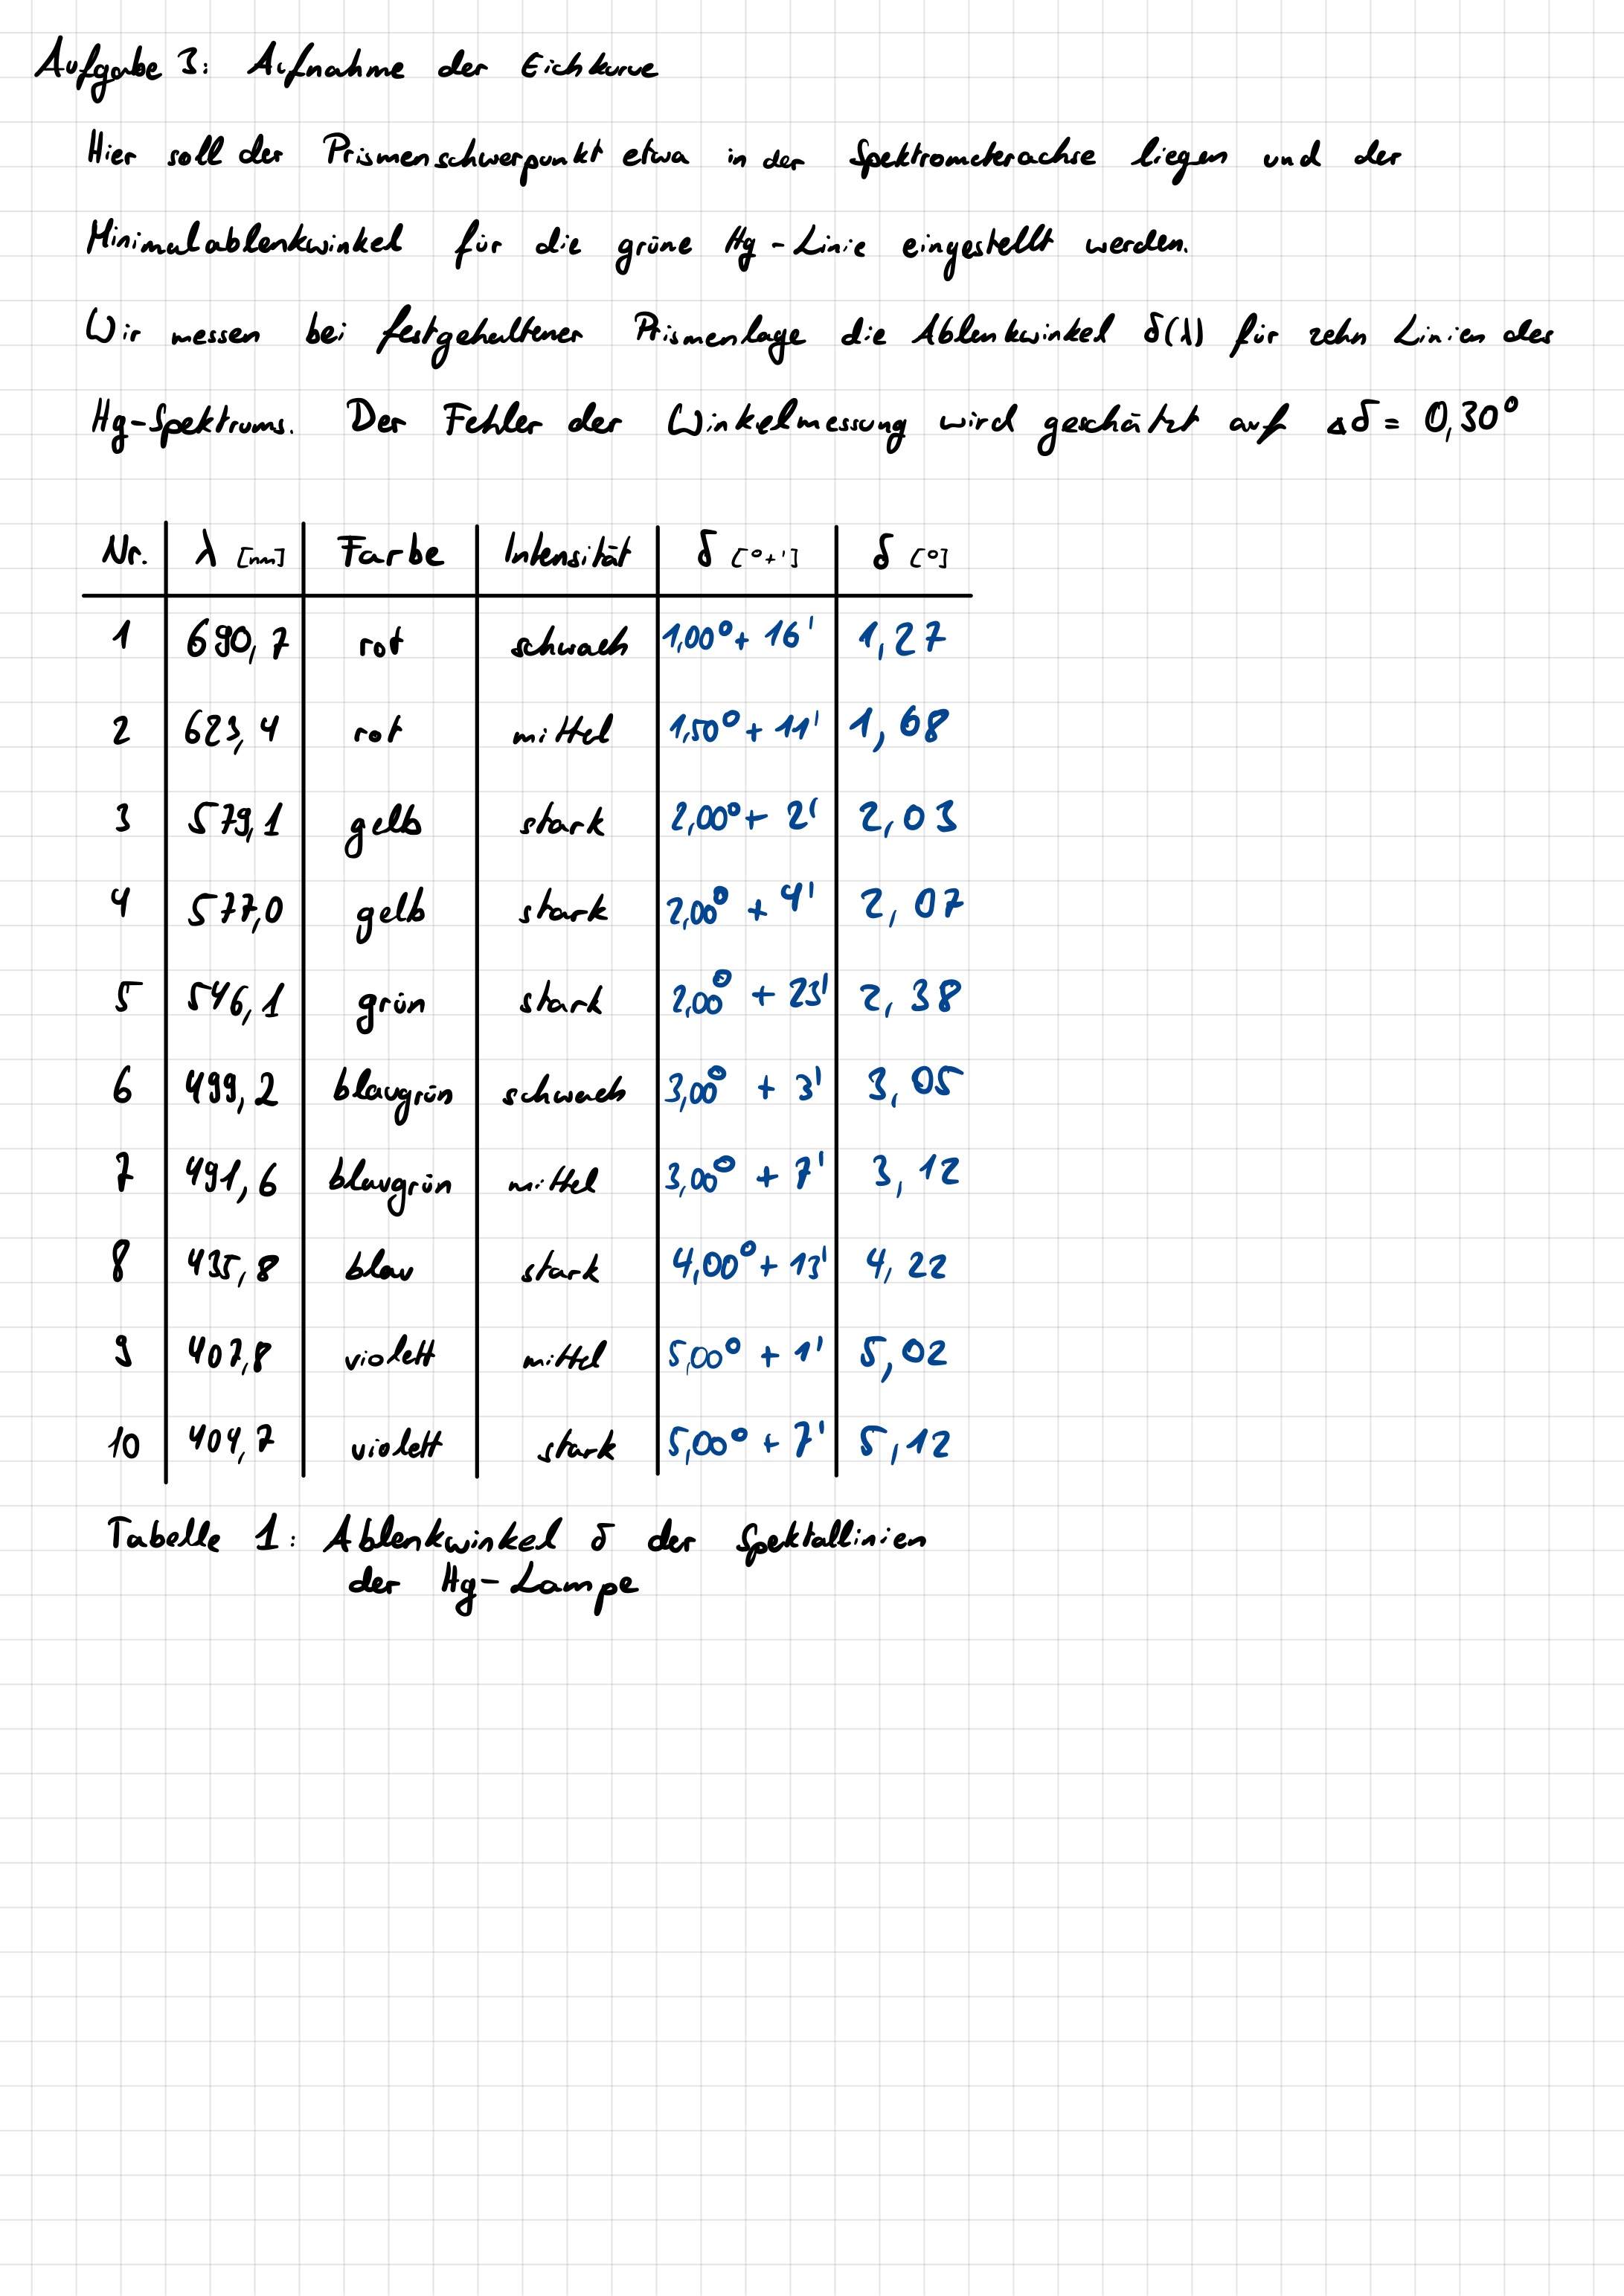 Aufgabe 3: Aufnahme der Eichkurve
Hier soll der Prismenschwerpunkt etwa in der Spektrometerachse liegen und der
Minimalablenkwinkel für die grüne Hg-Linie eingestellt werden.
Wir messen bei festgehaltener Prismenlage die Ablenkwinkel δ(λ) für zehn Linien des
Hg-Spektrums. Der Fehler der Winkelmessung wird geschätzt auf Δδ = 0,30°
Nr. λ [nm] Farbe Intensität δ [°+'] δ [°]
1 690,7 rot schwach 1,00° + 16' 1,27
2 623,4 rot mittel 1,50° + 11' 1,68
3 579,1 gelb stark 2,00° + 2' 2,03
4 577,0 gelb stark 2,00° + 4' 2,07
5 546,1 grün stark 2,00° + 23' 2,38
6 499,2 blaugrün schwach 3,00° + 3' 3,05
7 491,6 blaugrün mittel 3,00° + 7' 3,12
8 435,8 blau stark 4,00° + 13' 4,22
9 407,8 violett mittel 5,00° + 1' 5,02
10 404,7 violett stark 5,00° + 7' 5,12
Tabelle 1: Ablenkwinkel δ der Spektallinien
der Hg-Lampe